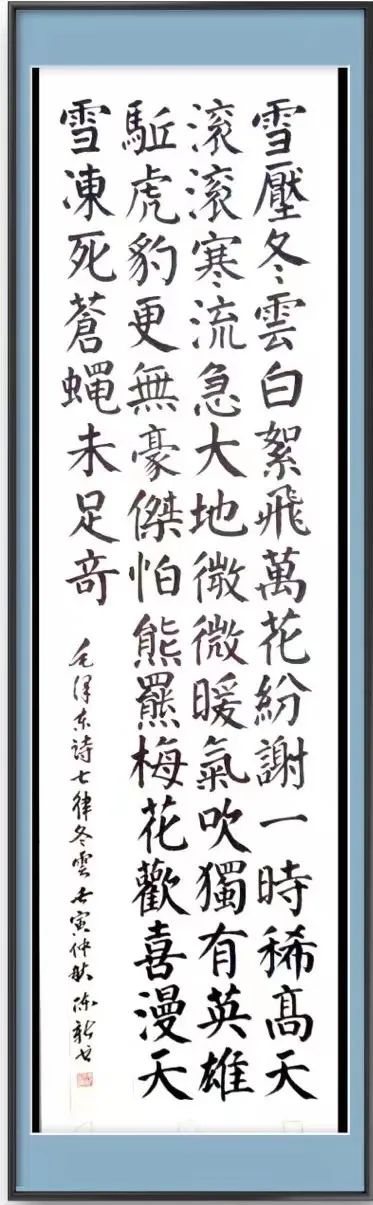 雪壓冬雲白絮飛萬花紛謝一時稀髙天
滚滚寒流急大地微微暖氣吹獨有英雄
駈虎豹更無豪傑怕熊羆梅花歡喜漫天
雪凍死蒼蝿未足竒
毛泽东诗七律冬雲 壬寅仲秋 陈新书